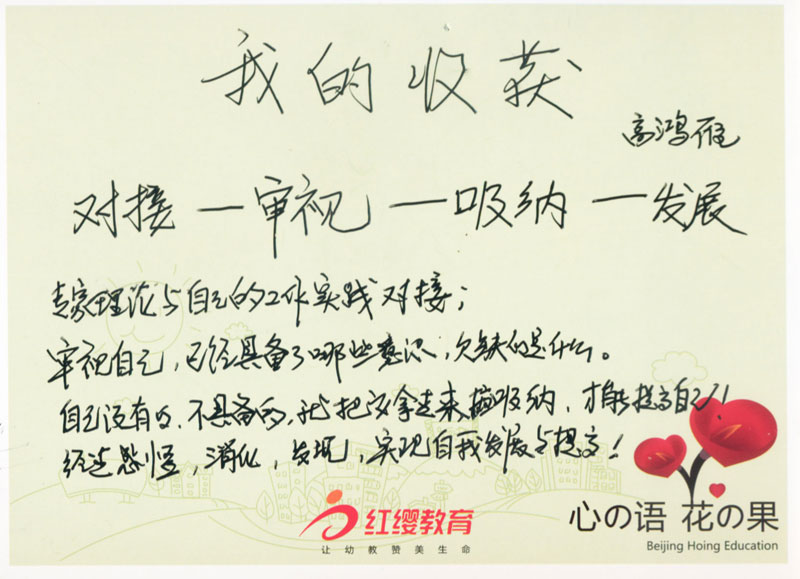 我的收获
高鸿雁
对接—审视—吸纳—发展
专家理论与自己的工作实践对接；
审视自己，已经具备了哪些意识，欠缺的是什么。
自己没有的、不具备的，就把它拿走来 吸纳，才能提高自己！
经过 ，消化，发现，实现自我发展与提高！
红缨教育
让幼教赞美生命
心の语 花の果
Beijing Hoing Education